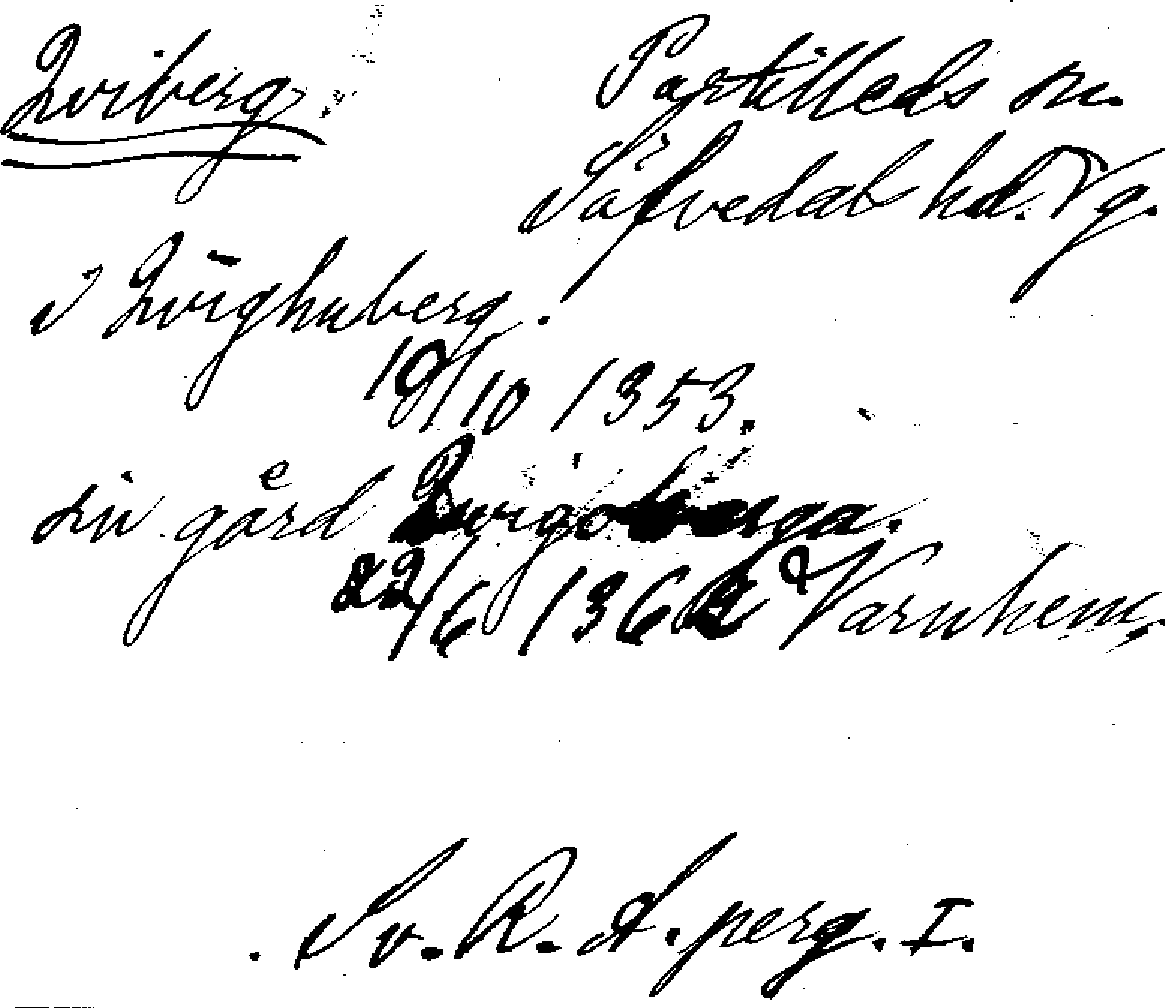 Qviberg. Partilleds sn.
Säfvedals hd. Vg.
i Qvighuberg.
19/10 1353.
sin gård
22/6 1362 Varnhem.
Sv. R. A. perg. I.